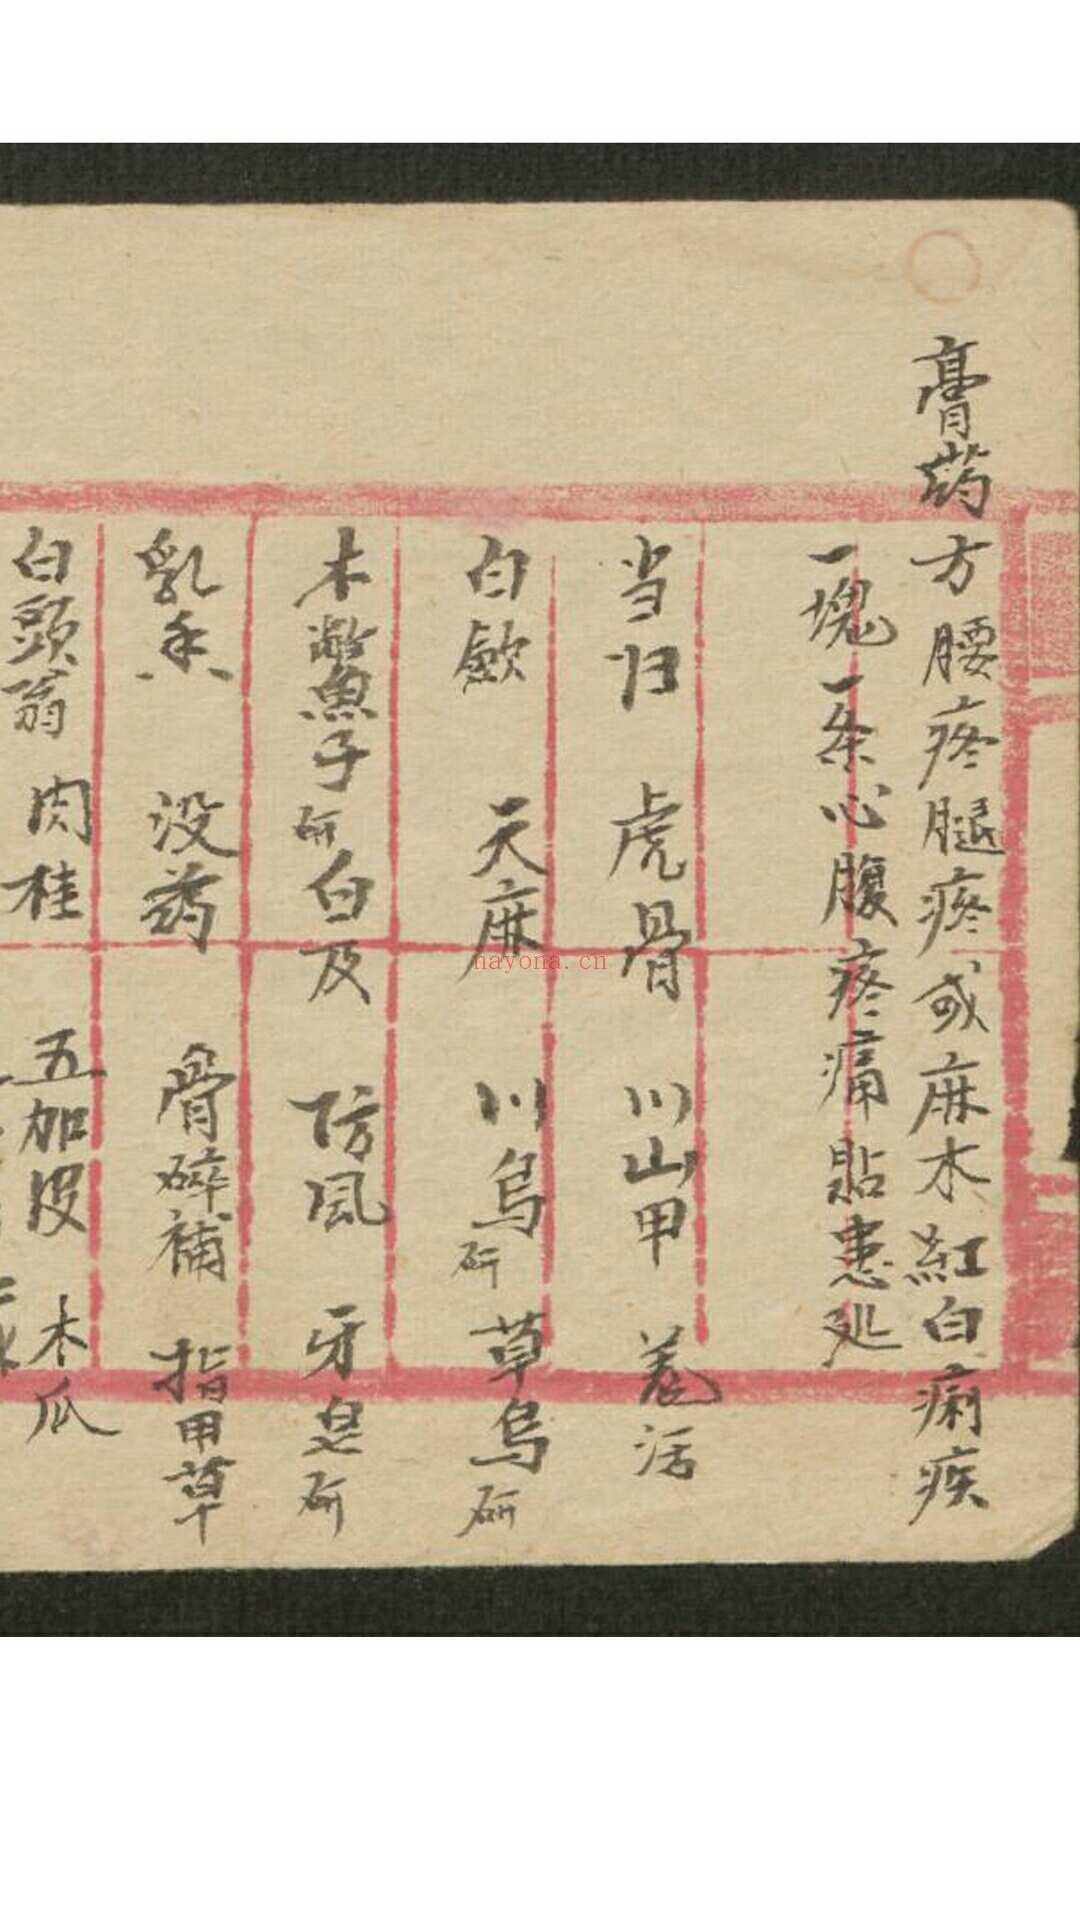 膏药方腰疼腿疼或麻木紅白痢疾
一塊一条心腹疼痛貼患处
当归 虎骨 川山甲 羗活
白歛 天麻 川烏研 草烏研
木鱉子研 白及 防風 牙皂研
乳香 没药 骨碎補 指甲草
白頭翁 肉桂 五加皮 木瓜
nayona.cn